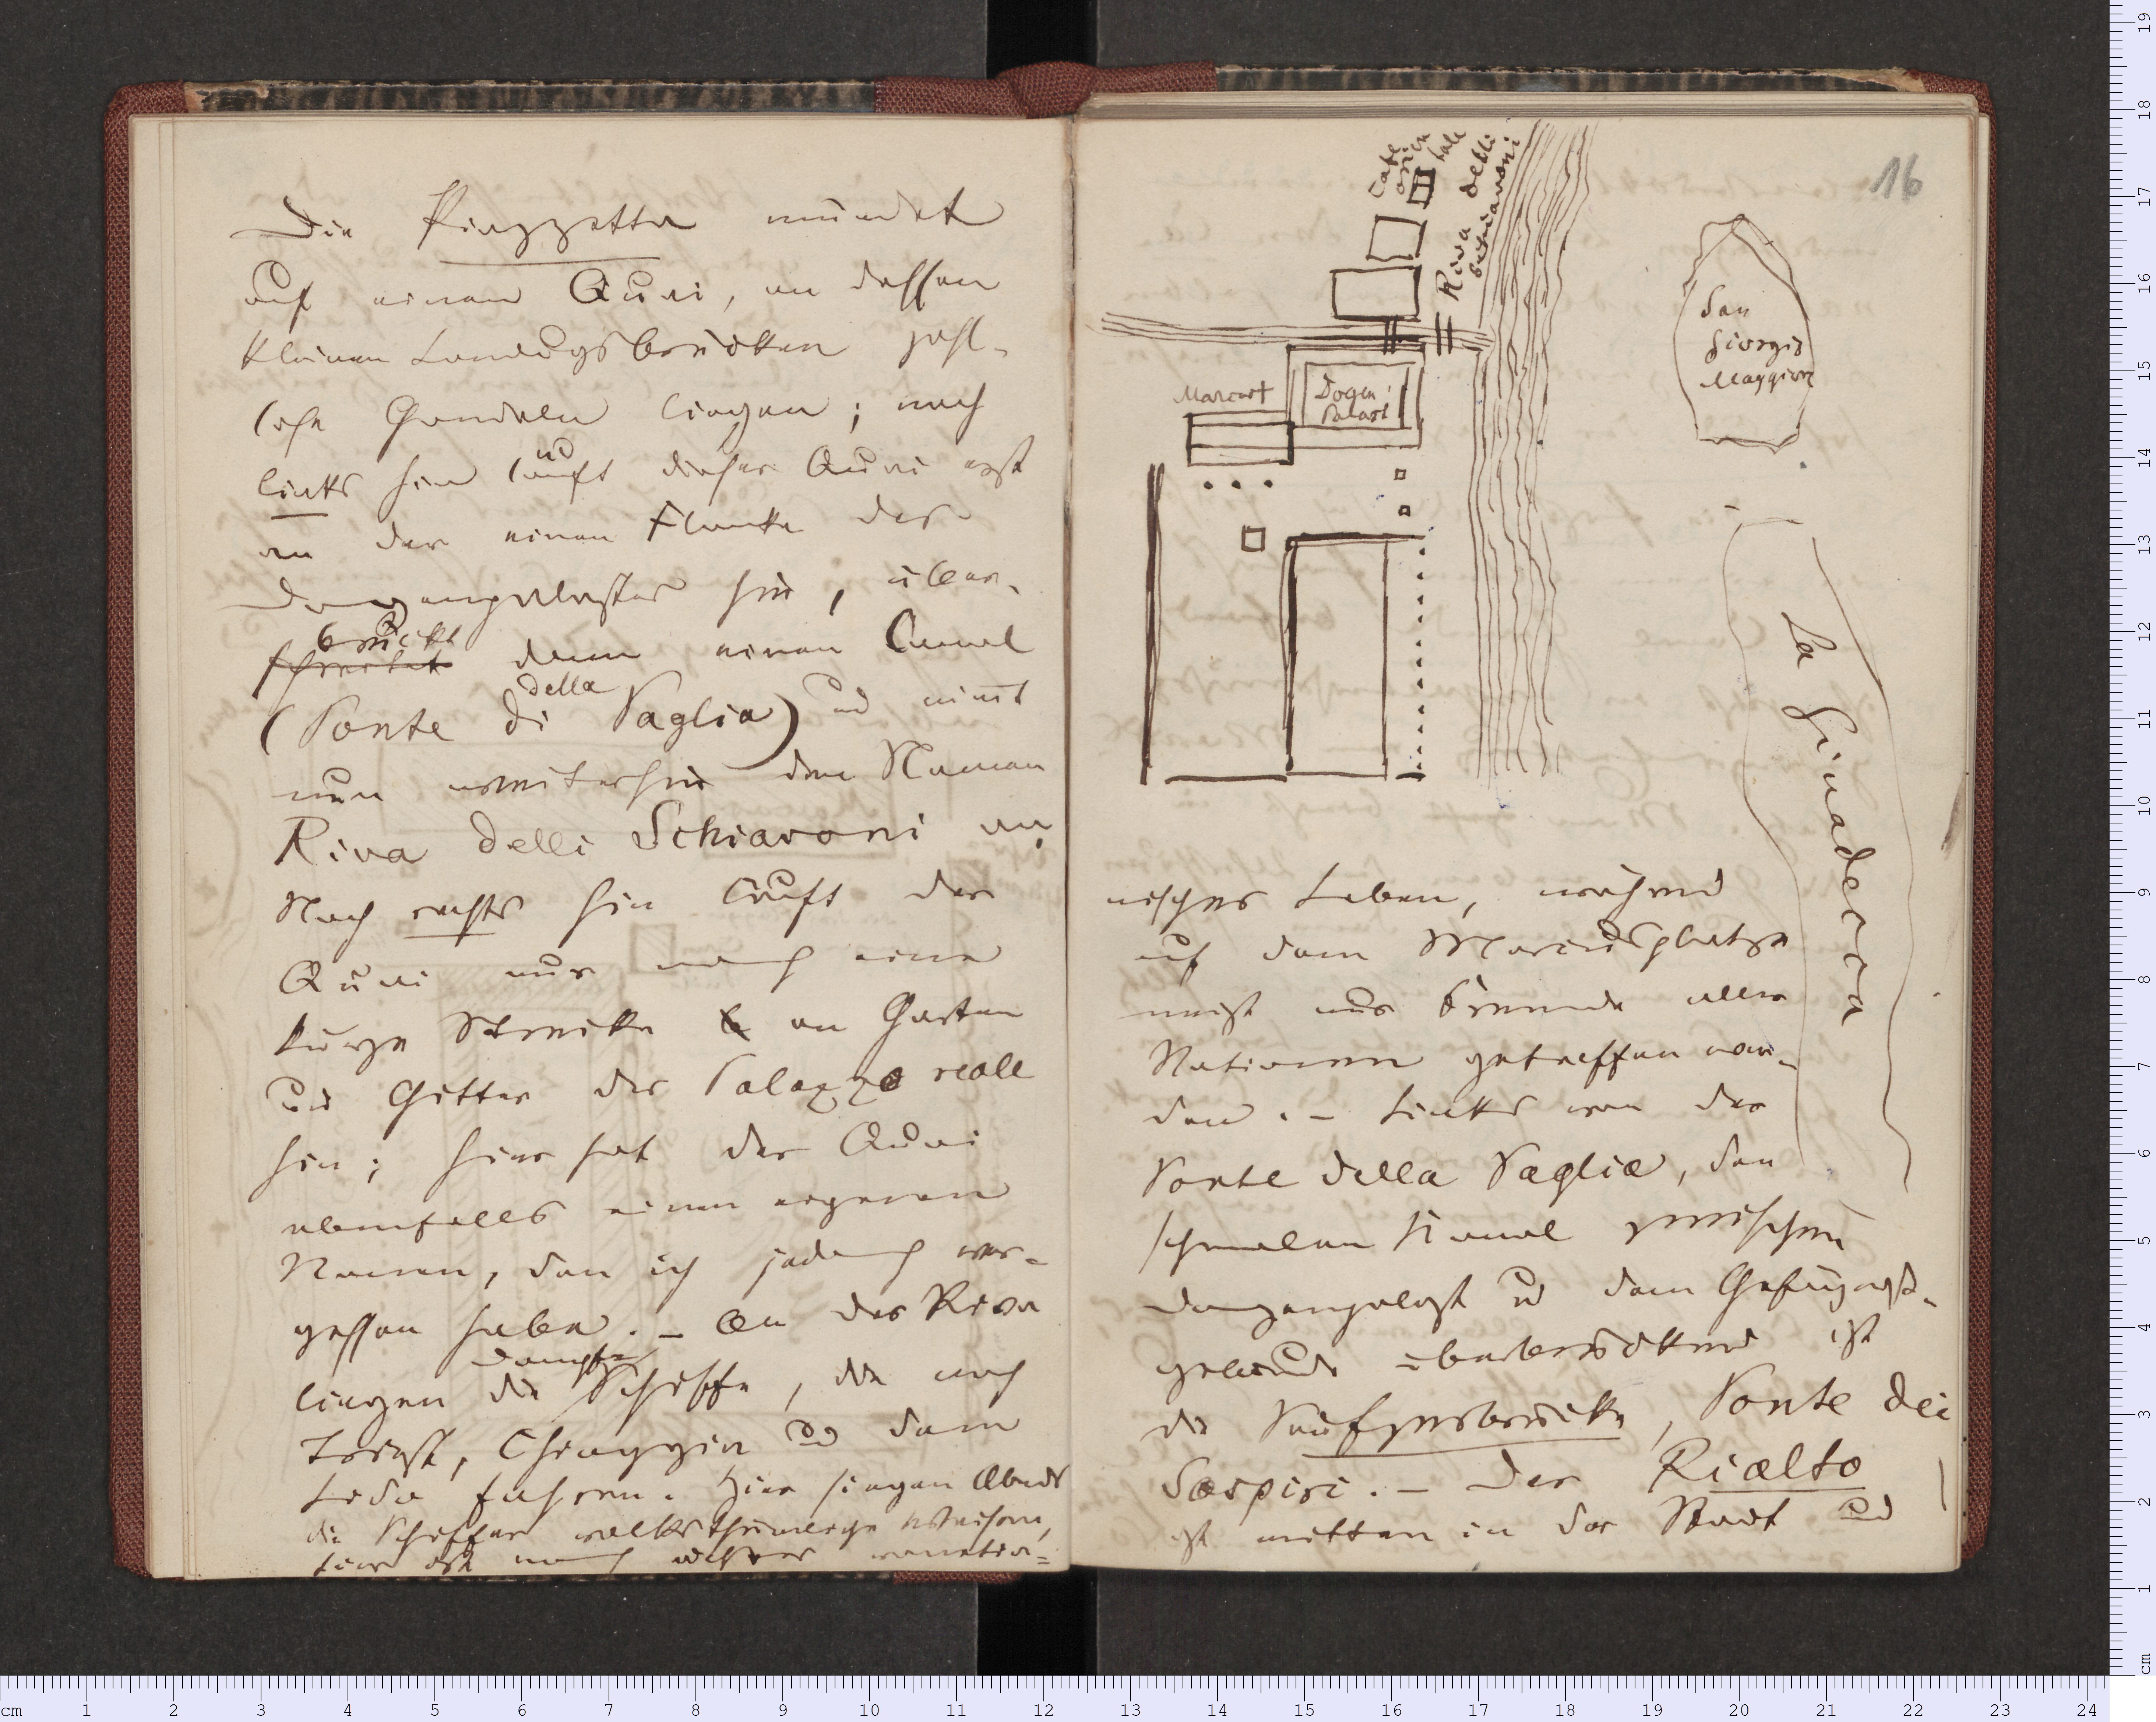 Die Piazzetta mündet
auf einen Quai, an dessen
kleinen Landugsbrücken zahl-
lose Gondeln liegen; nach
links hin läuft dieser Quai erst
an der einen Flanke des
Dogenpalastes hin, über-
brückt
schreitet dann einen Canal
della
(Ponte di Paglia) und nimt
nun weiterhin den Namen
Riva delli Schiavoni an.
Nach rechts hin läuft der
Quai nur noch eine
kurze Strecke an Garten
und Gitter des Palazzo reale
hin; hier hat der Quai
ebenfalls einen eigenen
Namen, den ich jedoch ver-
gessen habe. – An der Riva
Dampf-
liegen die Schiffe, die nach
Triest, Chioggia und dem
Lido fahren. Hier singen Abends
die Schiffer volksthümliche Weisen,
hier ist noch ächtes venetia-
16
Café
orien
tale
Riva delli
Schiavoni
San
Giorgio
Maggiore
Marcus†
Dogen
Palast
La Giudecca
nisches Leben, während
auf dem Marcusplatze
meist nur Fremde aller
Nationen getroffen wer-
den. – Links von der
Ponte della Paglia, den
schmalen Kanal zwischen
Dogenpalast und dem Gefängniß-
gebäude überbrückend ist
die Seufzerbrücke, Ponte dei
Sospiri. – Der Rialto
ist mitten in der Stadt und